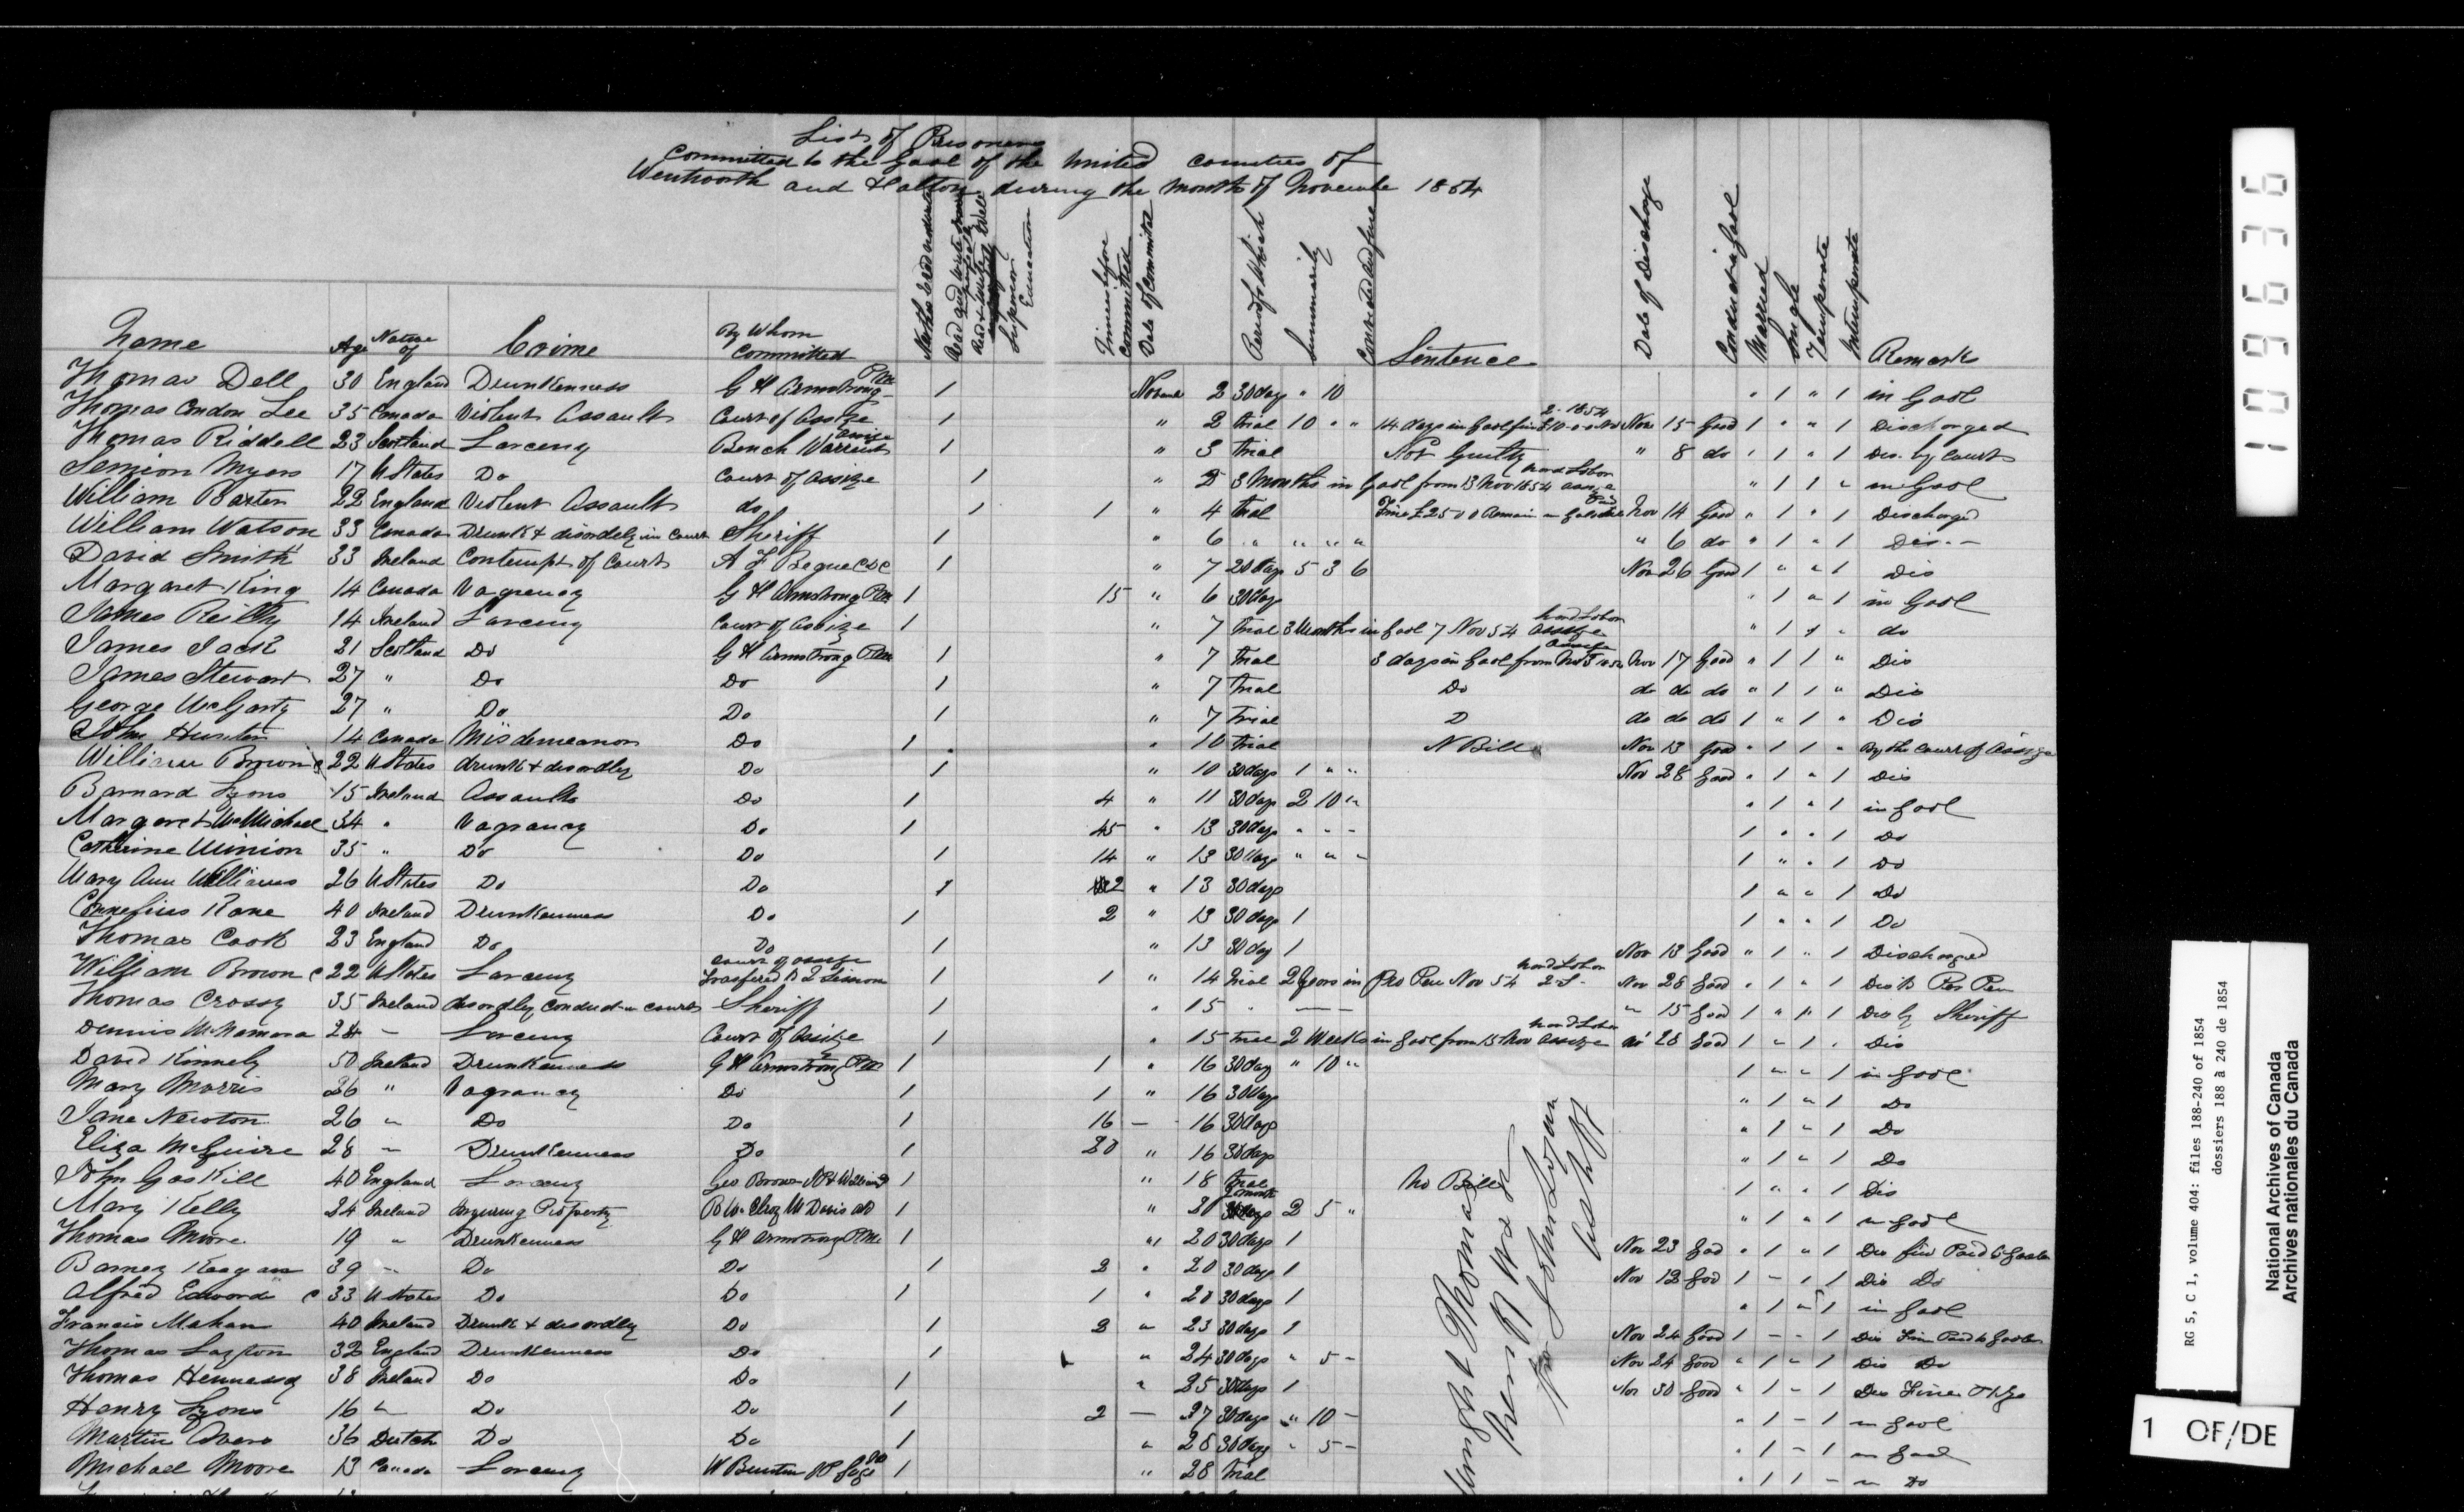 List of Prisoners
Committed to the Gaol of the United Counties of
Wentworth and Halton during the month of November 1854
Name Age Native of Crime By Whom Committed Neither read and write Superior Education Times before Committed Date of Committal Period for Which Summarily Convicted and fine Sentence Date of Discharge Conduct in Gaol Married Single Temperate Intemperate Remarks
Thomas Dell 30 England Drunkenness G H Armstrong PM 1 2 30 days " 10 " 1 " 1 in Gaol
Thomas Condon Lee 35 Canada Violent Assault Court of Assize 1 " 2 trial 10 " " 14 days in Gaol Nov 15 Good 1 " " 1 Discharged
Thomas Riddell 23 Scotland Larceny Bench Warrant Assize 1 " 3 trial Not Guilty " 8 do " 1 " 1 Dis. by Court
Myers 17 U States Do Court of Assize 1 " 3 Months in Gaol from 13 Nov 1854 hard Labor " 1 1 " in Gaol
William Baxter 22 England Violent Assault do 1 1 " 4 trial Nov 14 Good " 1 " 1 Discharged
William Watson 33 Canada Drunk & disordely in Court Sheriff 1 " 6 " " " " " 6 do " 1 " 1 Dis. -
David Smith 33 Ireland Contempt of Court 1 " 7 20 days 5 3 6 Nov 26 Good 1 " " 1 Dis
Margaret King 14 Canada Vagrancy G H Armstrong PM 1 15 " 6 30 days " 1 " 1 in Gaol
James Reilly 14 Ireland Larceny Court of Assize 1 " 7 trial 3 Months in Gaol 7 Nov 54 Assize hard Labor " 1 1 " do
James Jack 21 Scotland Do G H Armstrong PM 1 " 7 trial 3 days in Gaol from Nov 17 Good " 1 1 " Dis
James Stewart 27 " Do Do 1 " 7 trial Do do do do " 1 1 " Dis
George McGarty 27 " Do Do 1 " 7 trial D do do do 1 " 1 " Dis
John 14 Canada Misdemeanor Do 1 " 10 trial N Bill Nov 13 Good " 1 1 " By the Court of Assize
William Brown c 22 U States drunk & disordley Do 1 " 10 30 days 1 " " Nov 28 Good " 1 " 1 Dis
Barnard Lyons 15 Ireland Assault Do 1 4 " 11 30 days 2 10 " " 1 " 1 in Gaol
Margaret McMichael 34 " Vagrancy Do 1 45 " 13 30 days " " - 1 " " 1 Do
Catherine Minion 35 " Do Do 1 14 " 13 30 days " " " 1 " " 1 Do
Mary Ann Williams 26 U States Do Do 1 2 " 13 30 days 1 " " 1 Do
Cornelius Kane 40 Ireland Drunkenness Do 1 2 " 13 30 days 1 1 " " 1 Do
Thomas Cook 23 England Do Do 1 " 13 30 day 1 Nov 13 Good " 1 " 1 Discharged
William Brown c 22 U States Larceny Court of Assize 1 1 " 14 trial 2 Years in Pro Pen Nov 54 hard Labor Nov 28 Good " 1 " 1 Dis to Pro Pen
Thomas Crossy 35 Ireland disordley conduct in court Sheriff 1 " 15 " " 15 Good 1 " " 1 Dis by Sheriff
Dennis McNamara 24 - Larceny Court of Assize 1 " 15 2 Weeks in Gaol from 15 Nov Assize hard Labor 28 Good 1 " 1 " Dis
David Kinnely 50 Ireland Drunkenness G H Armstrong PM 1 1 " 16 30 days " 10 " 1 " " 1 in Gaol
Mary Morris 26 " Vagrancy Do 1 1 " 16 30 days " 1 " 1 Do
Jane Newton 26 " Do Do 1 16 - 16 30 days " 1 " 1 Do
Eliza McGuire 28 - Drunkenness Do 1 20 " 16 30 days " 1 " 1 Do
John Gaskill 40 England Larceny Geo Brown 1 " 18 trial No Bill 1 " " 1 Dis
Mary Kelly 24 Ireland Injuring Property 1 " 20 2 5 " " 1 " 1 in Gaol
Thomas Moore 19 " Drunkenness G H Armstrong PM 1 " 20 30 days 1 Nov 23 Good " 1 " 1 Dis fine Paid to Gaoler
Barney Keegan 39 - Do Do 1 2 " 20 30 days 1 Nov 12 Good 1 - 1 1 Dis Do
Alfred Edwards c 33 U States Do Do 1 1 " 20 30 days 1 " 1 " 1 in Gaol
Francis Mahan 40 Ireland Drunk & disordley Do 1 2 " 23 30 days 1 Nov 24 Good 1 - - 1 Dis Fine Paid to Gaoler
Thomas Layton 32 England Drunkenness Do 1 " 24 30 days " 5 - Nov 24 Good " 1 - 1 Dis Do
Thomas Hennessy 38 Ireland Do Do 1 " 25 30 days 1 Nov 30 Good " 1 - 1 Dis Fine
Henry Lyons 16 " Do Do 1 2 - 27 30 days " 10 - " 1 - 1 in Gaol
Martin 36 Dutch Do Do 1 " 28 30 days " 5 - " 1 - 1 in Gaol
Michael Moore 13 Canada Larceny 1 " 28 trial " 1 1 - in Do
109636
RG 5, C 1, volume 404: files 188-240 of 1854
dossiers 188 à 240 de 1854
National Archives of Canada
Archives nationales du Canada
1 OF/DE